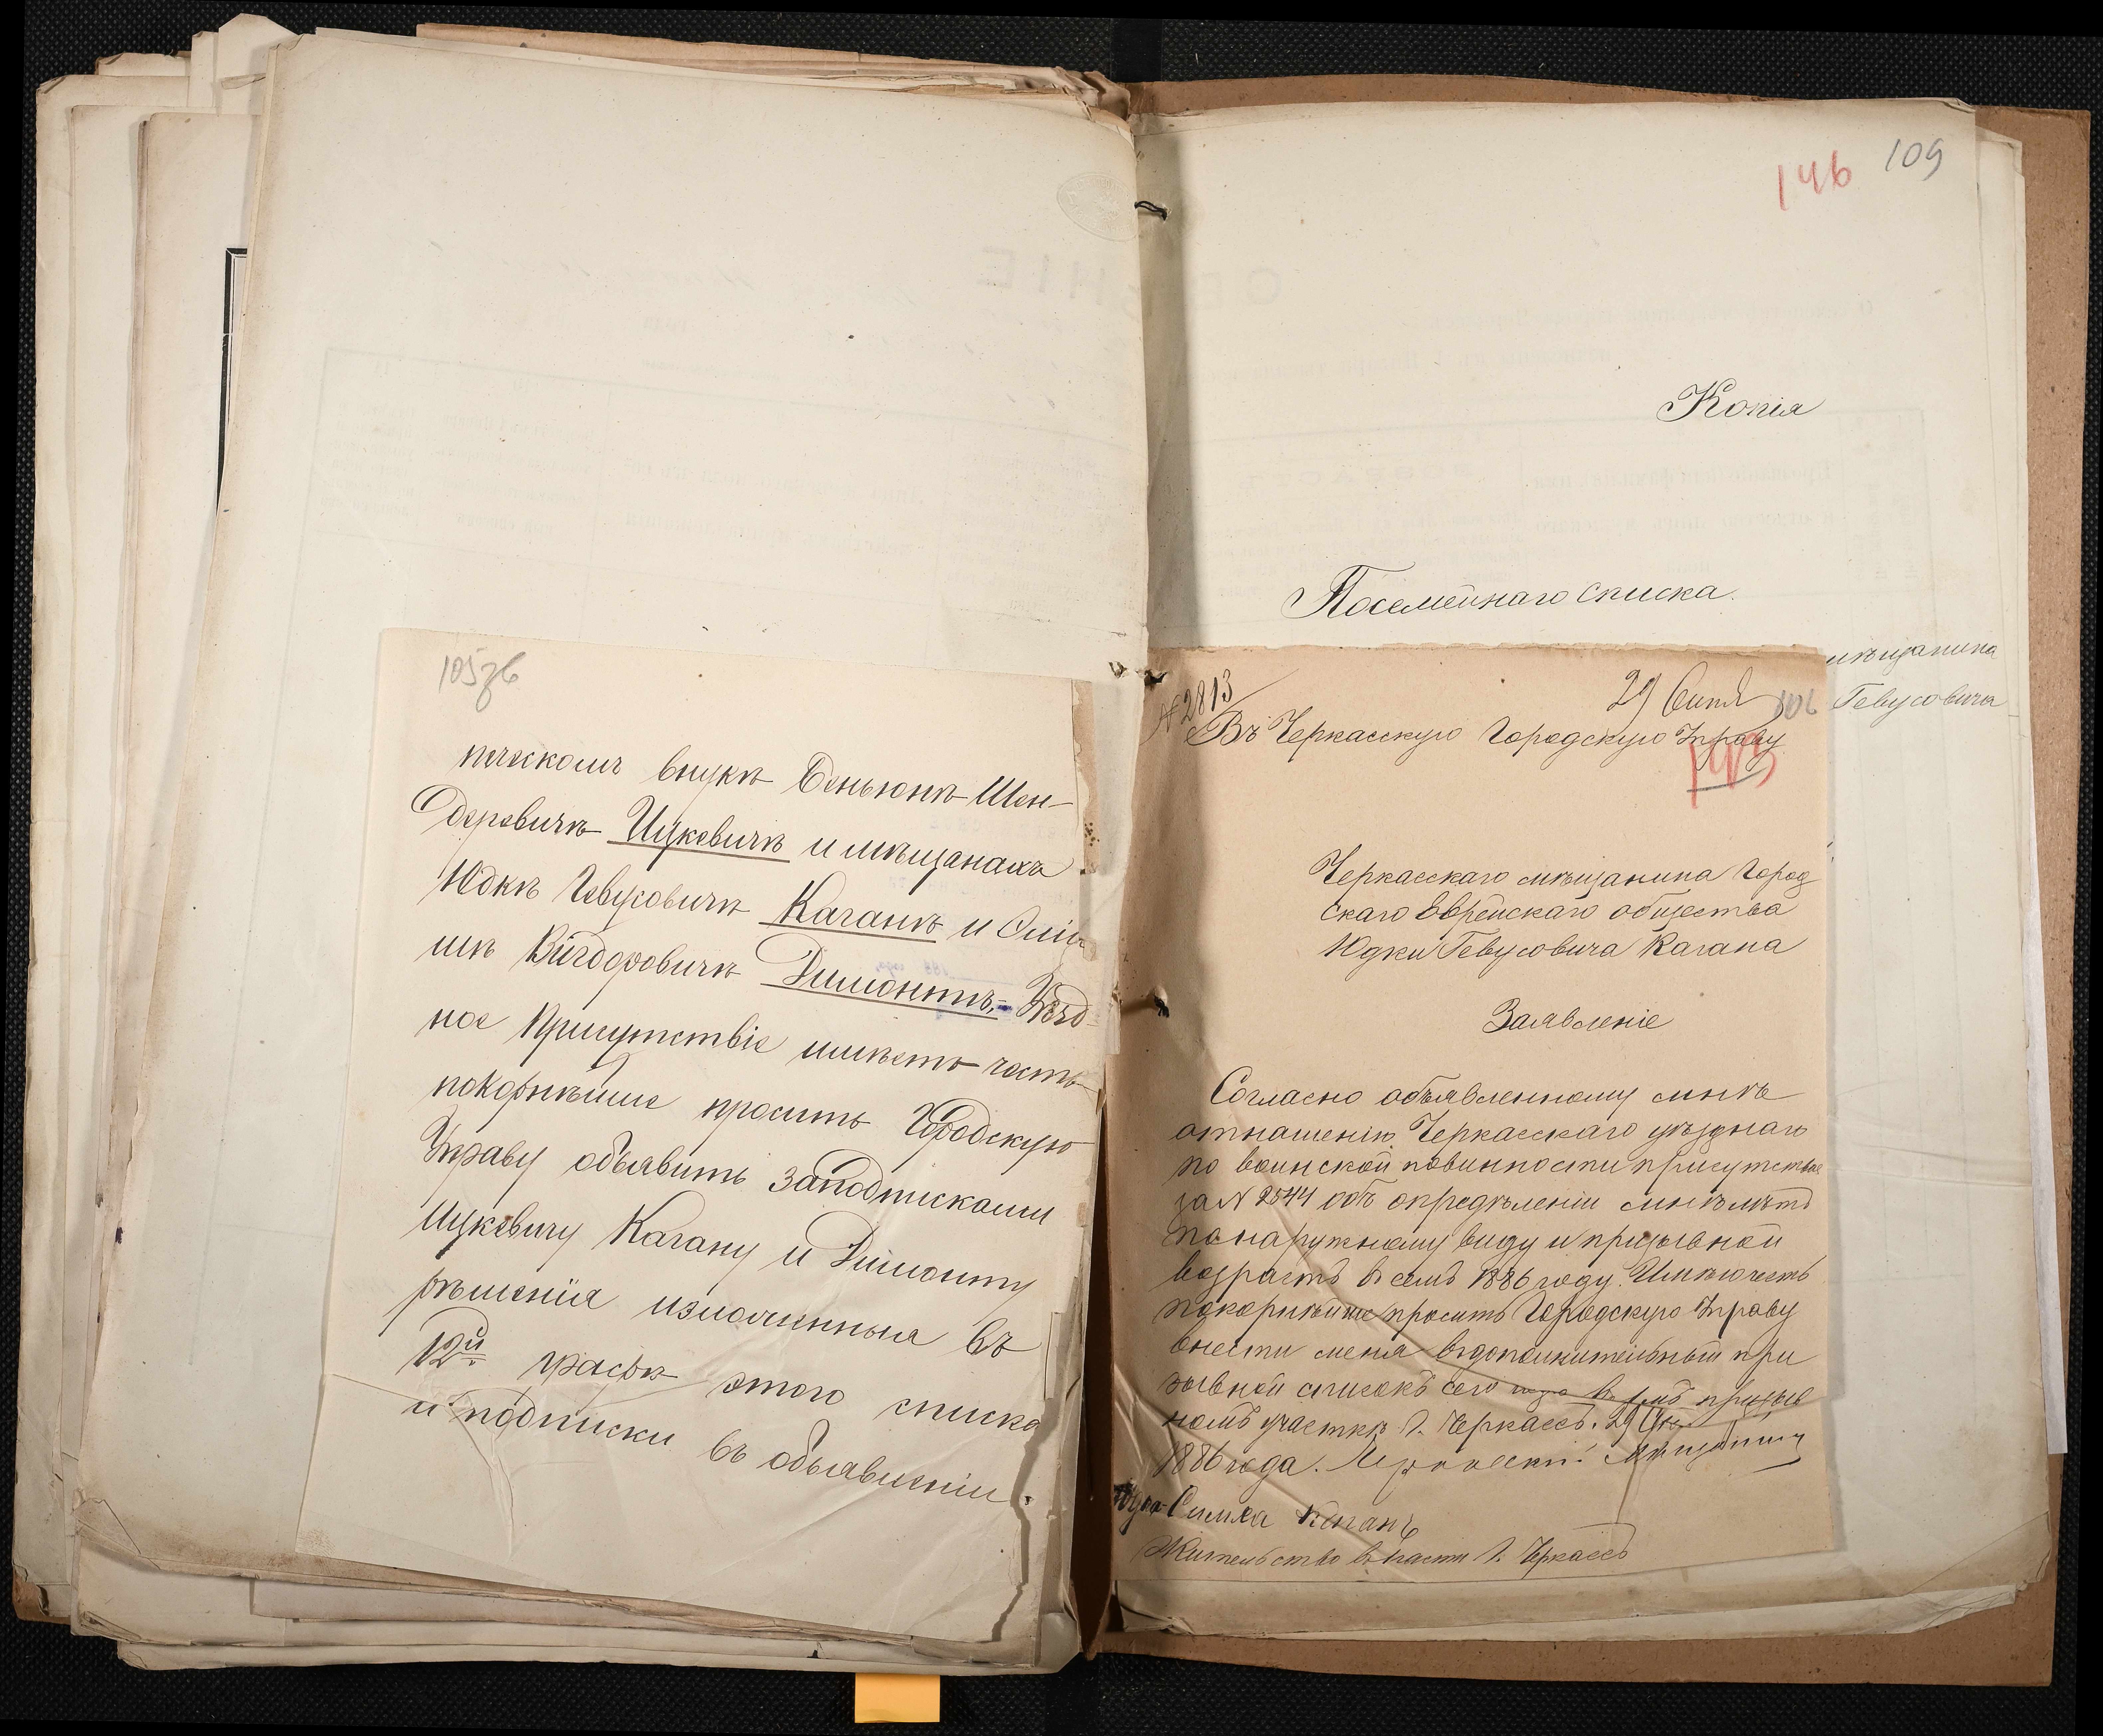 105 зв
пческомъ внукѣ Беньюнѣ Шен-
деровичѣ Ицкевичѣ и мѣщанахъ
Юдкѣ Гевусовичѣ Каганѣ и Сим
шѣ Вигдоровичѣ Димонтъ, Уѣзд-
ное Присутствіе имѣетъ честь
покорнѣйше просить Городскую
Управу объявить заподписками
Ицкевичу Кагану и Димонту
рѣшенія изложенныя въ
12й графѣ этого списка
и подписки въ объявленіи.
146 109
Копія
Посемейнаго списка.
мѣщанина
Гевусовича
№ 2813
29 Сент 106
Въ Черкасскую Городскую Управу
Черкасскаго мѣщанина Город
скаго Еврейскаго общества
Юдки Гевусовича Кагана
Заявленіе
Согласно объявленному мнѣ
отношенію Черкасскаго уѣзднаго
по воинской повинности присутствія
за № 2544 объ опредѣленіи мнѣ лѣтъ
по наружному виду и призывной
возрастъ въ семъ 1886 году. Имѣю честь
покорнѣйше просить Городскую Управу
внести меня въ дополнительный при
зывной списокъ сего года въ призыв
номъ участкѣ г. Черкассъ. 29
1886 года. мѣщанинъ
Симха Каганъ
Жительство въ части г. Черкассъ